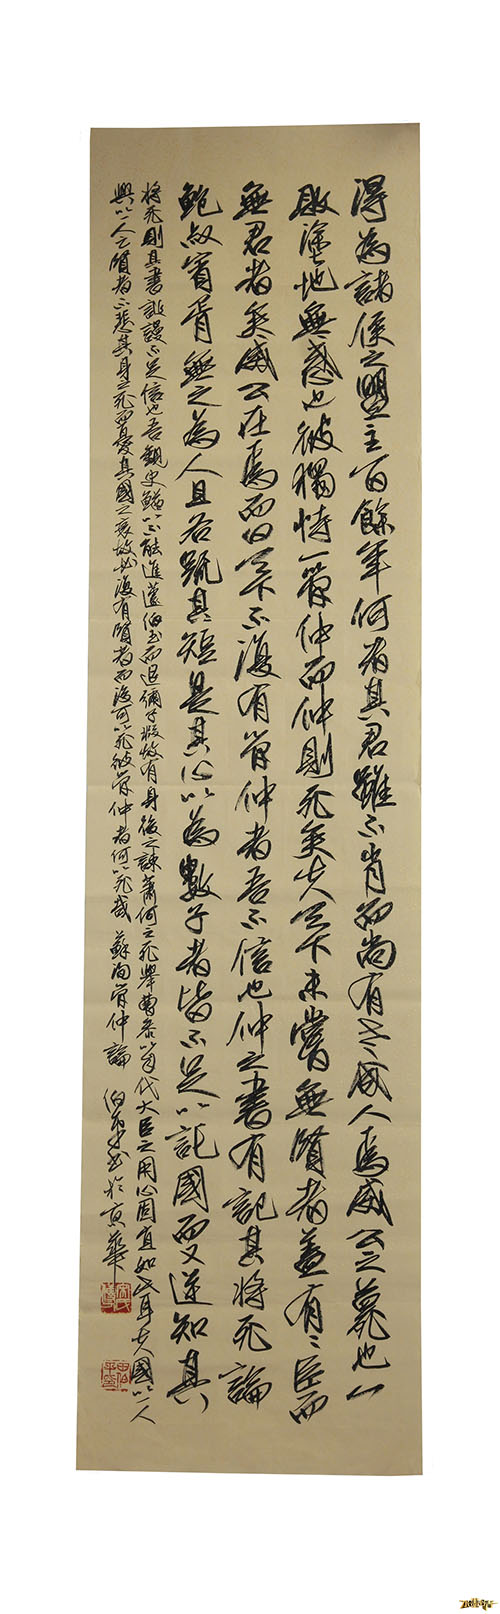 得為諸侯之盟主百餘年何者其君雖不肖而尚有老成人焉威公之薨也一
敗塗地無惑也彼獨恃一管仲而仲則死矣夫天下未嘗無賢者蓋有有臣而
無君者矣威公在焉而曰天下不復有管仲者吾不信也仲之書有記其將死論
鮑叔賓胥無之為人且各疏其短是其心以為數子者皆不足以託國而又逆知其
將死則其書誕謾不足信也吾觀史鰌以不能進蘧伯玉而退彌子瑕故有身後之諫蕭何且死舉曹參以自代大臣之用心固宜如此耳夫國以一人
興以一人亡賢者不悲其身之死而憂其國之衰故必復有賢者而後可以死彼管仲者何以死哉 蘇洵管仲論 伯 書於京華